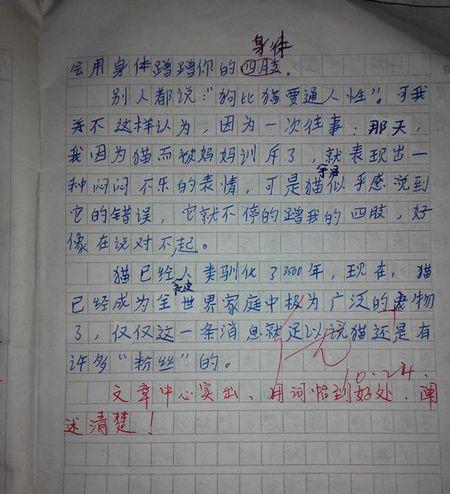 身体
会用身体蹭蹭你的四肢。
别人都说:“狗比猫要通人性”。可我
并不这样认为,因为一次往事:那天,
我因为猫而被妈妈训斥了,就表现出一
种闷闷不乐的表情,可是猫似乎感说到
它的错误,它就不停的蹭我的四肢,好
像在说对不起。
猫已经人类驯化了3500年,现在,猫
已经成为全世界家庭中极为广泛的宠物
了,仅仅这一条消息就足以说猫还是有
许多“粉丝”的。
10.24.
文章中心突出,用词恰到好处,阐
述清楚!